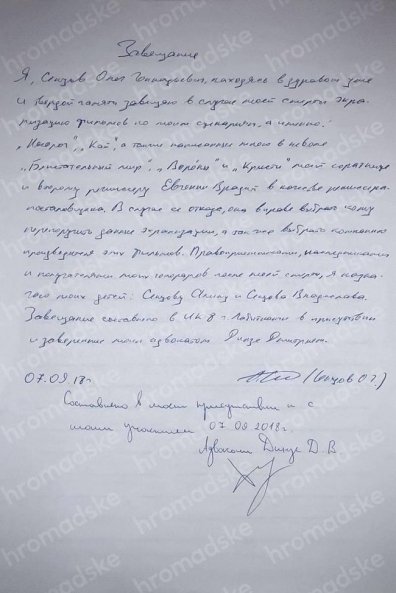 Завещание
Я, Сенцов Олег Геннадьевич, находясь в здравом уме
и твердой памяти завещаю в случае моей смерти экра-
низацию фильмов по моим сценариям, а именно:
„Носорог", „Кай", а также написанные мною в неволе
мой соратнице
и второму режиссеру Евгении Врадий в качестве режиссера-
постановщика. В случае ее отказа, она вправе выбрать кому
перепоручить данные экранизации, а так же выбрать компанию
произведения этих фильмов. Правоприемниками, наследниками
и получателями моих гонораров после моей смерти, я назна-
чаю моих детей: Сенцову Алину и Сенцова Владислава.
Завещание составлено в ИК 8 г. Лабытнанги в присутствии
и заверенно моим адвокатом Динзе Дмитрием.
07.09.18г. (Сенцов О.Г.)
Составлено в моем присутствии и с
моим участием 07.09.2018г.
Адвокат Динзе Д.В.
hromadske